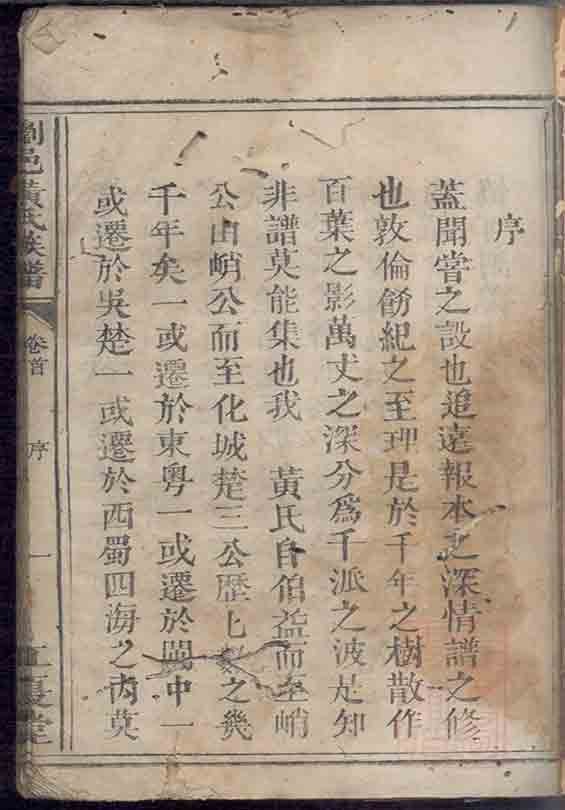 序
蓋聞嘗之設也追遠報本之深情譜之修
也敦倫飭紀之至理是於千年之樹散作
百葉之影萬丈之深分爲千派之波是知
非譜莫能集也我 黄氏自伯益而至峭
公山峭公而至化城楚三公歷之幾
千年矣一或遷於東粵一或遷於閩中一
或遷於吳楚一或遷於西蜀四海之内莫
瀏邑黄氏族譜
卷首
序
一
江夏堂